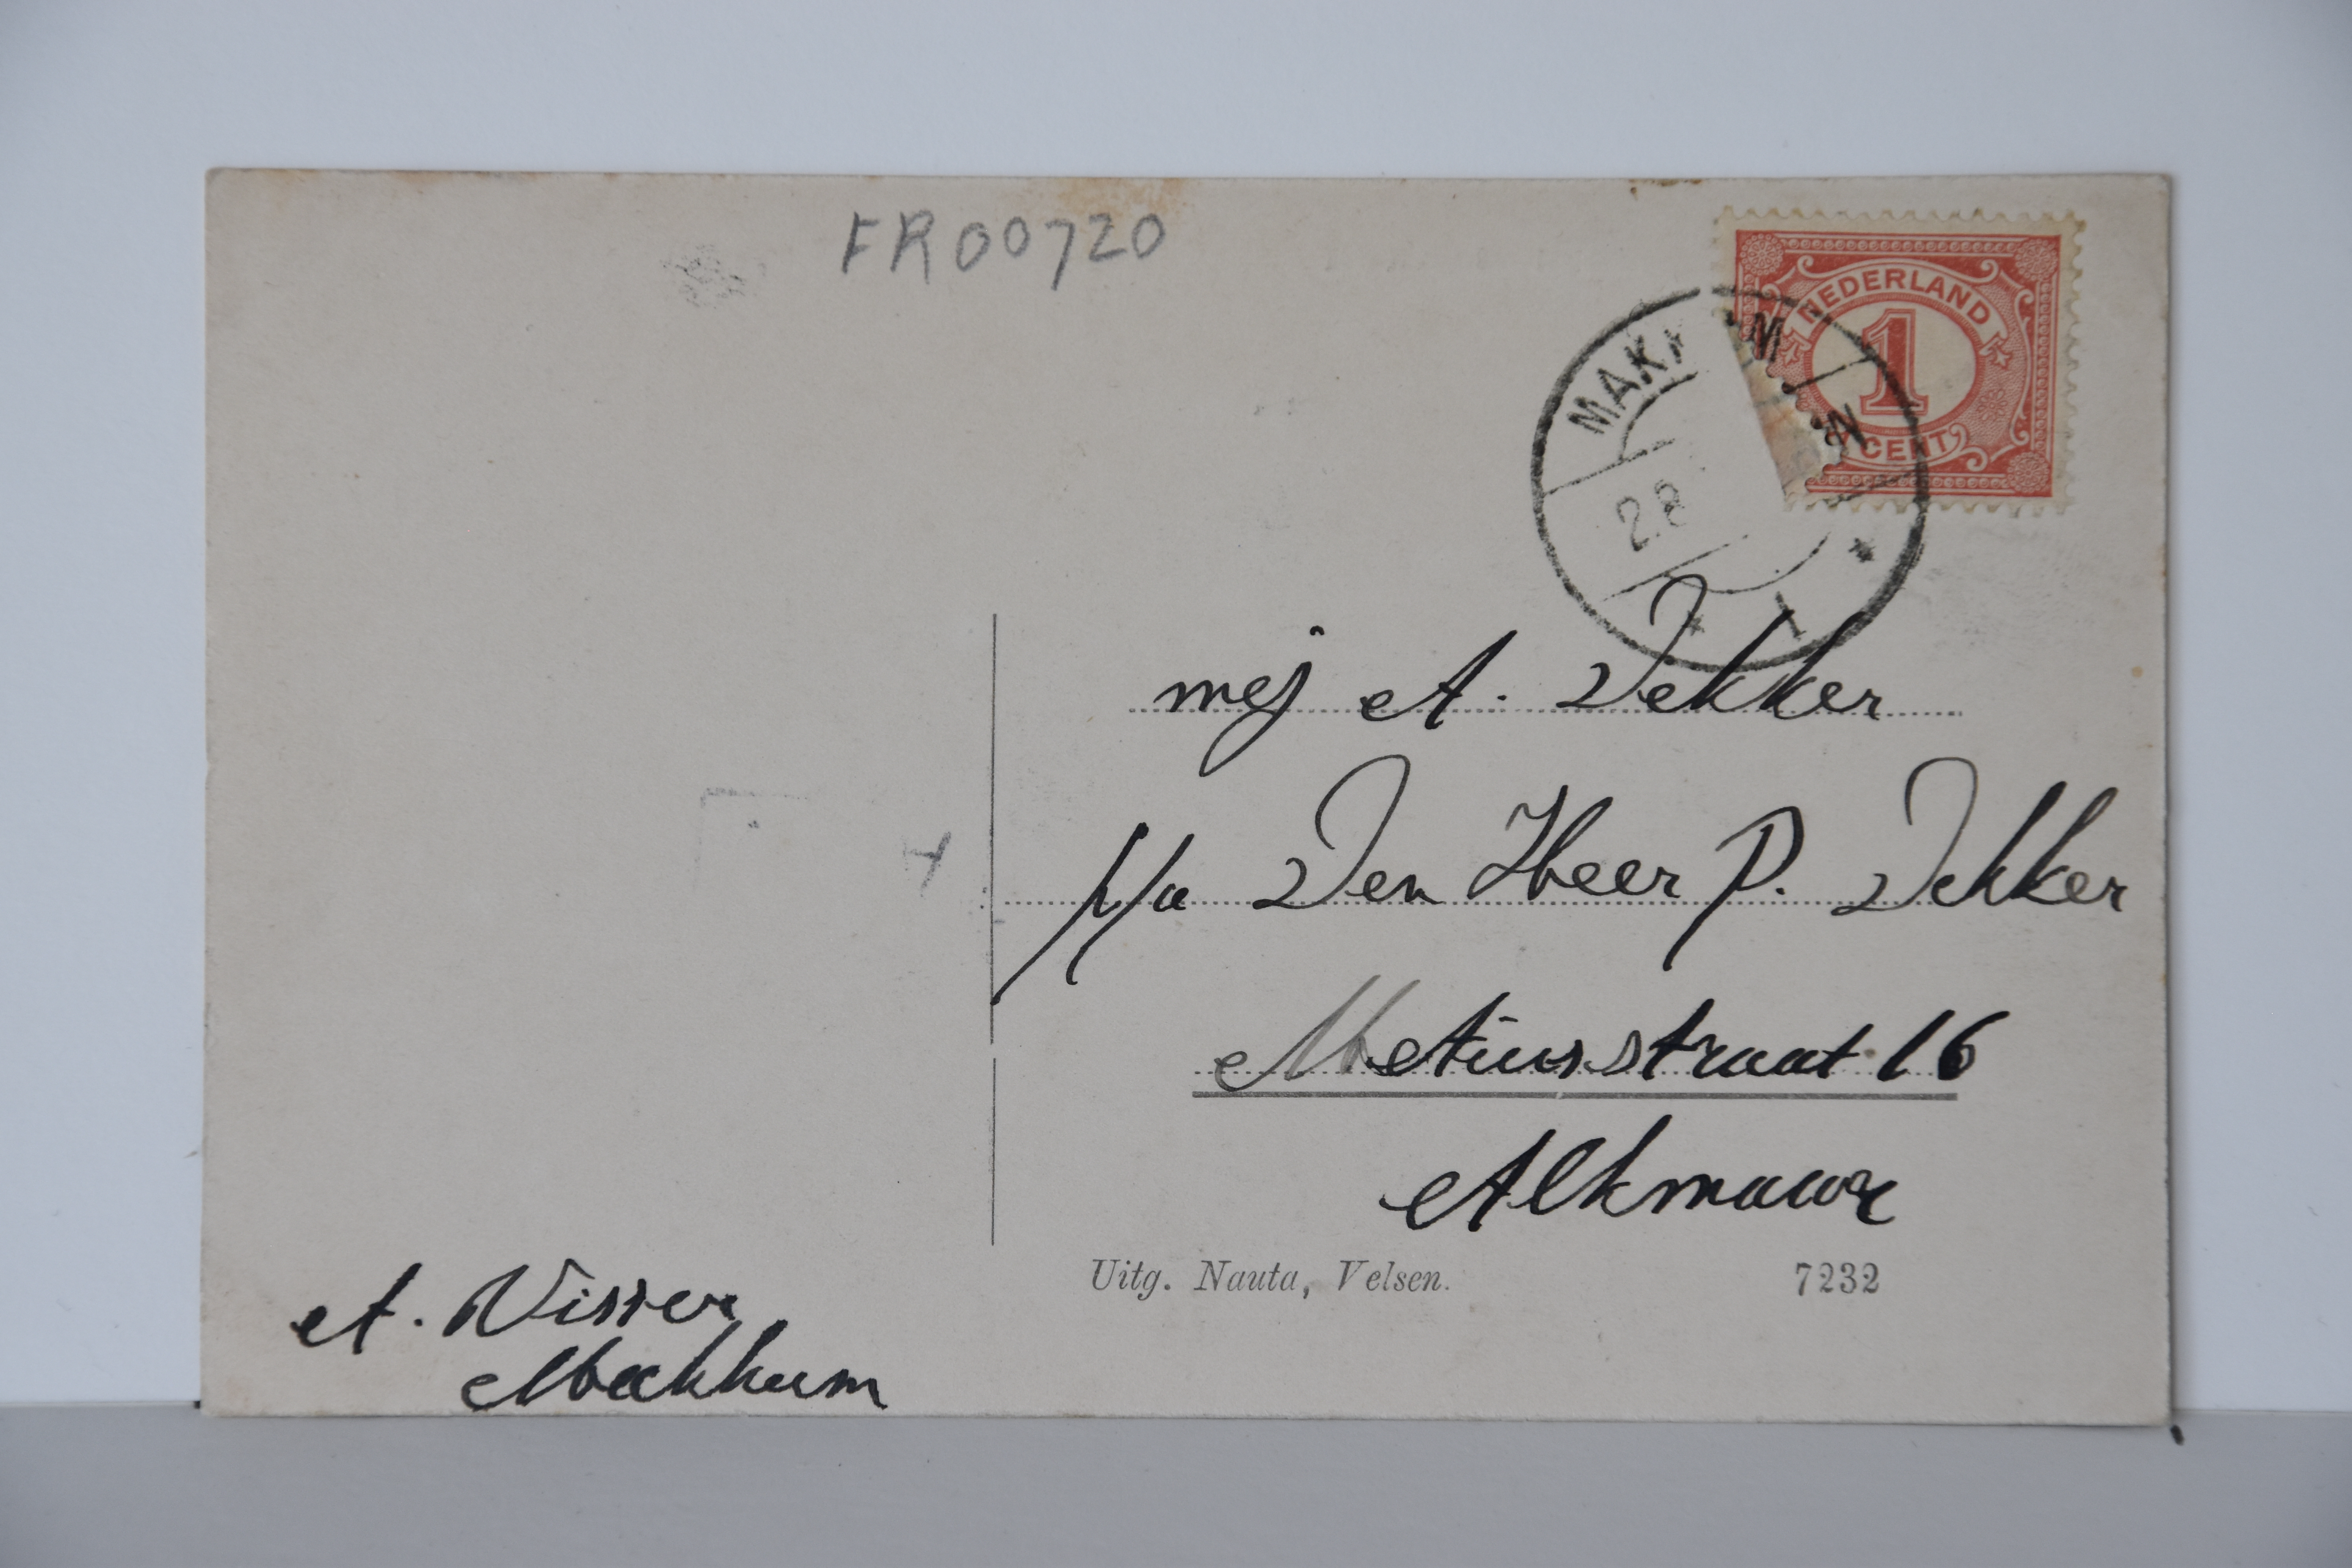 FR00720
NEDERLAND
1
CENT
MAKK M
28
mej A. Dekker
p/a Den Heer P. Dekker
Metiusstraat 16
Alkmaar
Uitg. Nauta, Velsen.
7232
A. Visser
Makkum